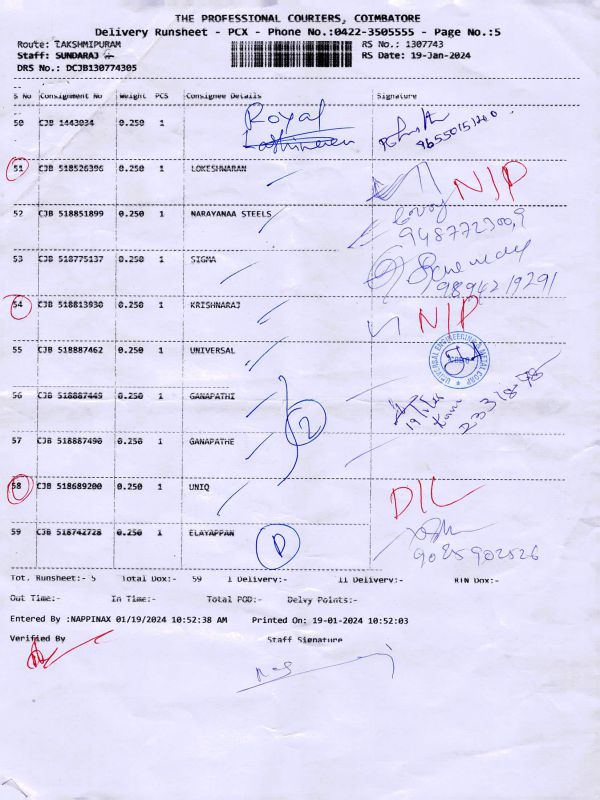 THE PROFESSIONAL COURIERS, COIMBATORE
Delivery Runsheet - PCX - Phone No.:0422-3505555 - Page No.:5
Route: LAKSHMIPURAM RS No.: 1307743
Staff: SUNDARAJ RS Date: 19-Jan-2024
DRS No.: DCJB130774305
S No Consignment No Weight PCS Consignee Details Signature
50 CJB 1443034 0.250 1 Royal 9655015120
51 CJB 518526396 0.250 1 LOKESHWARAN NIP
52 CJB 518851899 0.250 1 NARAYANAA STEELS
53 CJB 518775137 0.250 1 SIGMA 9894219291
54 CJB 518813930 0.250 1 KRISHNARAJ NIP
55 CJB 518887462 0.250 1 UNIVERSAL UNIVERSAL ENGINEERING & METAL CORP
56 CJB 518887449 0.250 1 GANAPATHI 2331878
2
57 CJB 518887490 0.250 1 GANAPATHE
58 CJB 518689200 0.250 1 UNIQ D/L
59 CJB 518742728 0.250 1 ELAYAPPAN D 9025902526
Tot. Runsheet:- 5 Total Dox:- 59 I Delivery:- II Delivery:- RTN Dox:-
Out Time:- In Time:- Total POD:- Delvy Points:-
Entered By :NAPPINAX 01/19/2024 10:52:38 AM Printed On: 19-01-2024 10:52:03
Verified By Staff Signature